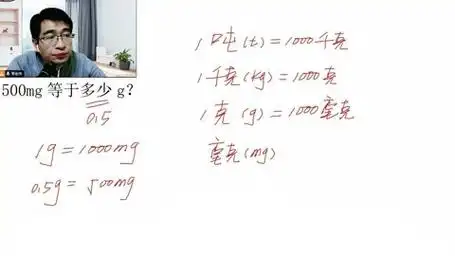 500mg 等于多少 g?
0.5
1g=1000mg
0.5g=500mg
1吨(t)=1000千克
1千克(kg)=1000克
1克(g)=1000毫克
毫克(mg)